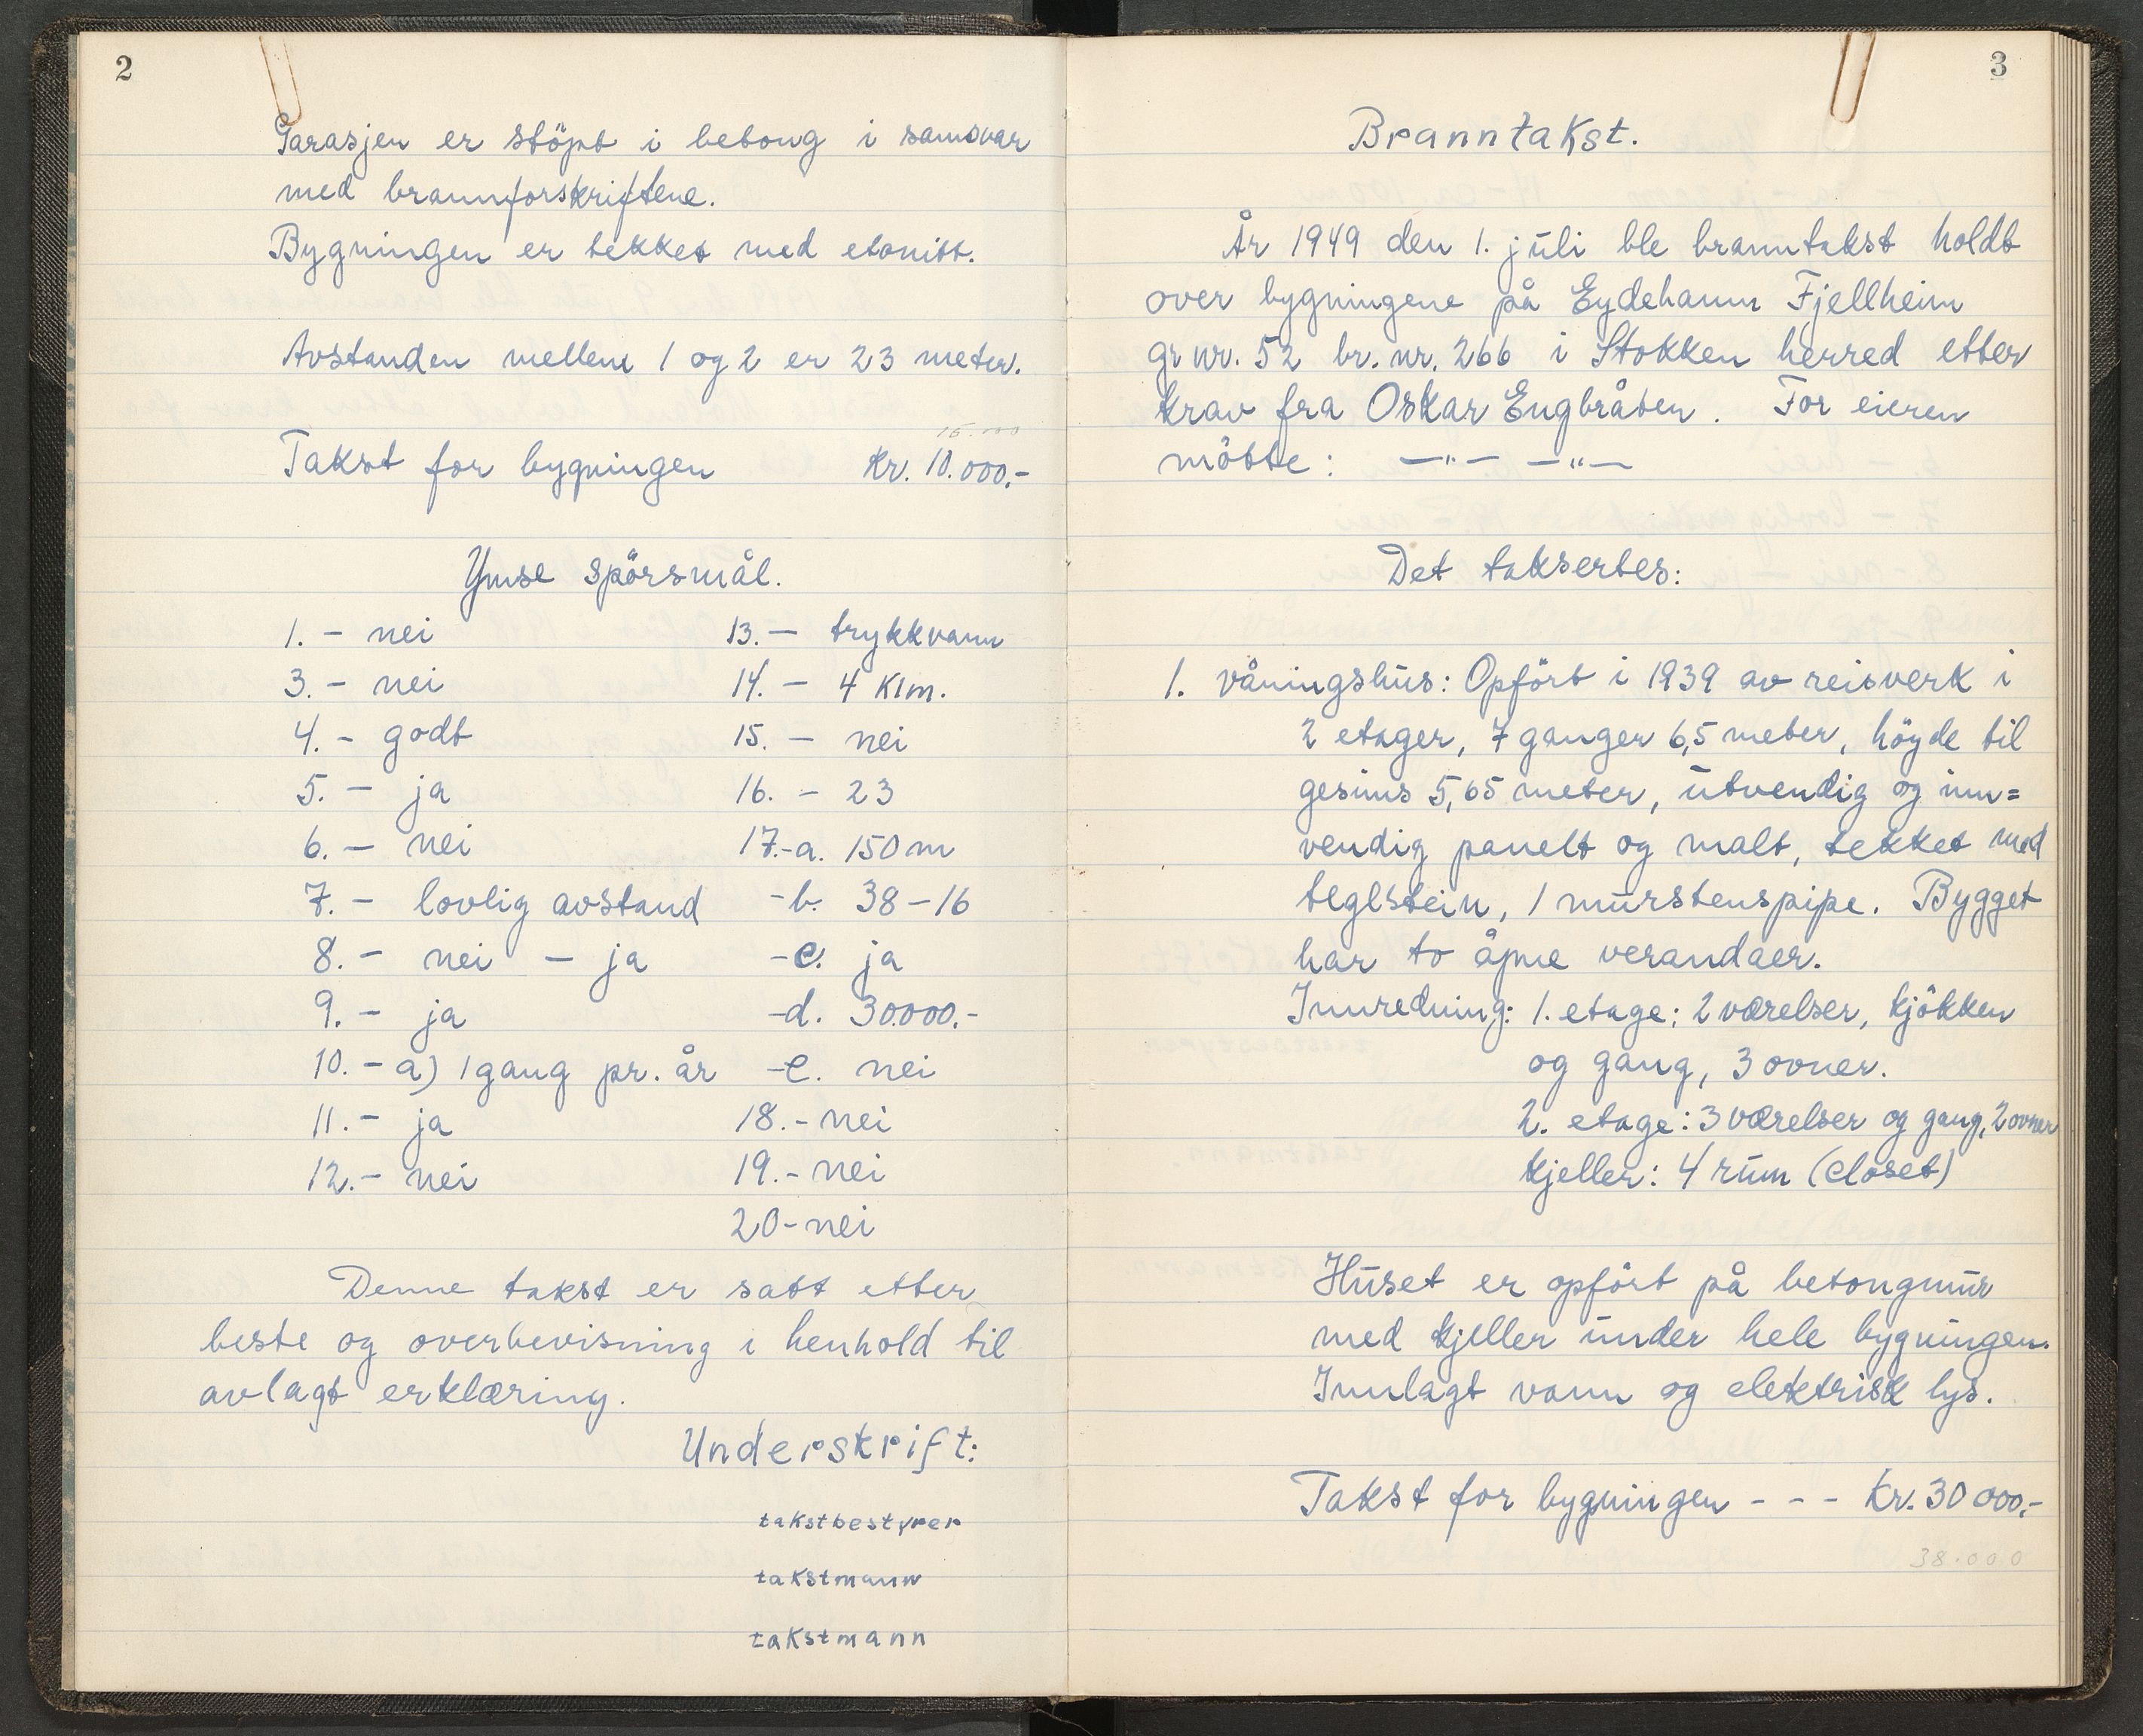 2
Garasjen er stöpt i betong i samsvar
med brannforskriftene.
Bygningen er tekket med etonitt.
Avstanden mellem 1 og 2 er 23 meter.
15.000
Takst for bygningen kr. 10.000.-
Ymse spörsmål.
1. - nei
3. - nei
4. - godt
5. - ja
6. - nei
7. - lovlig avstand
8. - nei - ja
9. - ja
10. - a) 1 gang pr. år
11. - ja
12. - nei
13. - trykkvann
14. - 4 Klm.
15. - nei
16. - 23
17.-a. 150 m
-b. 38-16
-c. ja
-d. 30.000.-
-e. nei
18. - nei
19. - nei
20 - nei
Denne takst er satt etter
beste og overbevisning i henhold til
avlagt erklæring.
Underskrift:
takstbestyrer
takstmann
takstmann
3
Branntakst.
År 1949 den 1. juli ble branntakst holdt
over bygningene på Eydehamn Fjellheim
gr nr. 52 br. nr. 266 i Stokken herred etter
krav fra Oskar Engbråten. For eieren
mötte: —"— —"—
Det taksertes:
1. våningshus: Opfört i 1939 av reisverk i
2 etager, 7 ganger 6,5 meter, höyde til
gesims 5,65 meter, utvendig og inn=
vendig panelt og malt, tekket med
teglstein, 1 murstenspipe. Bygget
har to åpne verandaer.
Innredning: 1. etage: 2 værelser, kjökken
og gang, 3 ovner.
2. etage: 3 værelser og gang, 2 ovner
kjeller: 4 rum (closet)
Huset er opfört på betongmur
med kjeller under hele bygningen.
Innlagt vann og elektrisk lys.
Takst for bygningen - - - Kr. 30 000.-
38.000